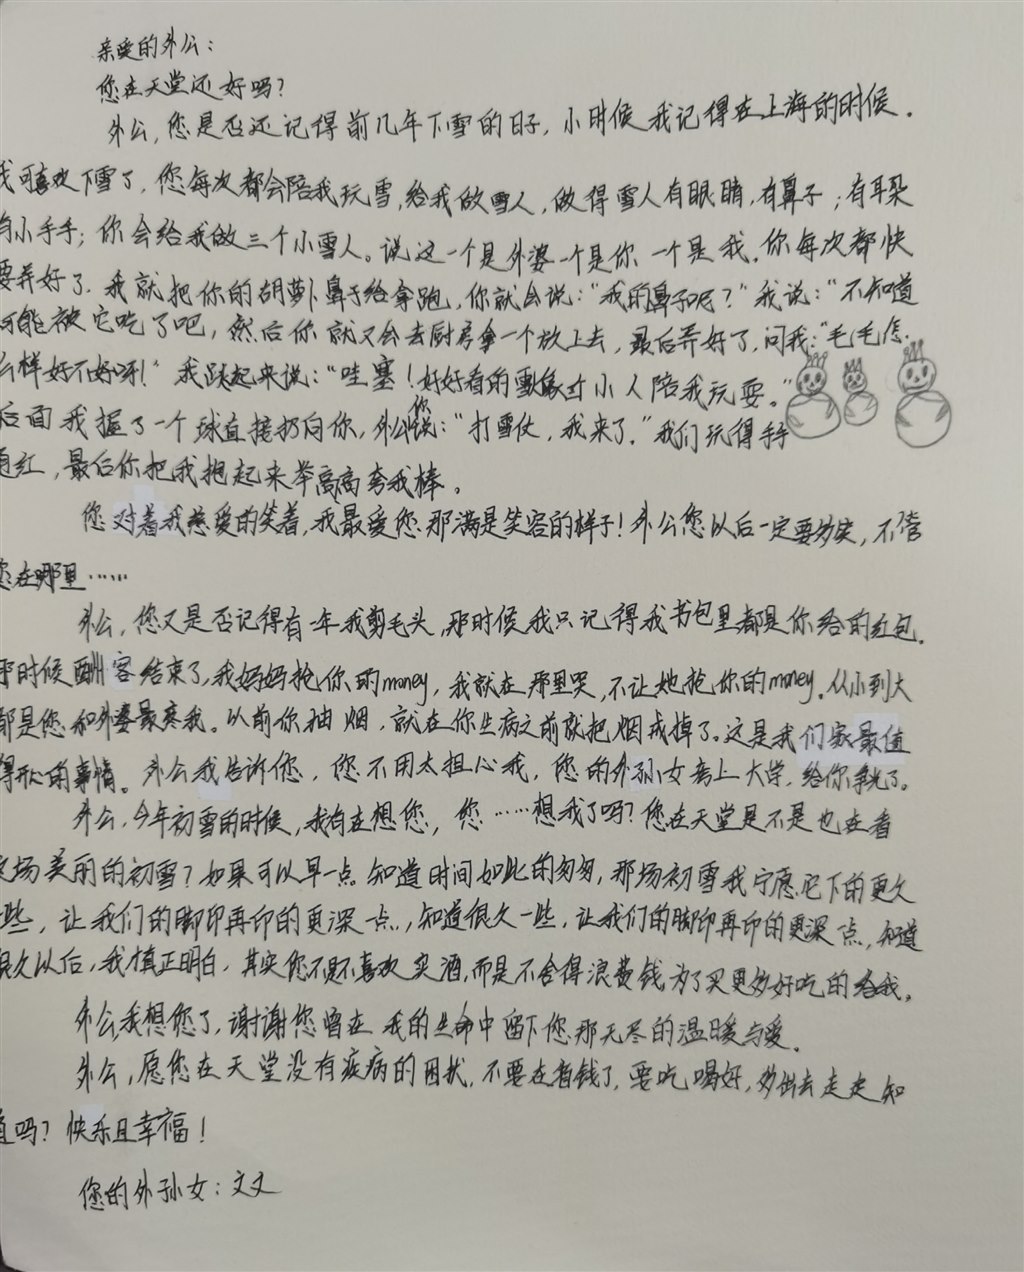 亲爱的外公：
您在天堂还好吗？
外公，您是否还记得前几年下雪的日子，小时候我记得在上海的时候。
我可喜欢下雪了，您每次都会陪我玩雪，给我做雪人，做得雪人有眼睛，有鼻子；有耳朵
有小手手；你会给我做三个小雪人。说这一个是外婆一个是你一个是我。你每次都快
要弄好了，我就把你的胡萝卜鼻子给拿跑，你就会说：“我的鼻子呢？”我说：“不知道
可能被它吃了吧，然后你就又会去厨房拿一个放上去，最后弄好了，问我：“毛毛怎
么样好不好呀！”我跃起来说：“哇塞！好好看的雪小人陪我玩耍。”
后面我握了一个球直接扔向你，外公您说：“打雪仗，我来了。”我们玩得手手
通红，最后你把我抱起来举高高夸我棒。
您对着我慈爱的笑着，我最爱您那满是笑容的样子！外公您以后一定要多笑，不管
您在哪里……
外公，您又是否记得有一年我剪毛头，那时候我只记得我书包里都是你给的红包。
那时候酬客结束了，我妈妈抢你的money，我就在那里哭，不让她抢你的money。从小到大
都是您和外婆最疼我。以前你抽烟，就在你生病之前就把烟戒掉了。这是我们家最值
得开心的事情。外公我告诉您，您不用太担心我，您的外孙女考上大学，给你争光了。
外公，今年初雪的时候，我有在想您，您……想我了吗？您在天堂是不是也在看
这场美丽的初雪？如果可以早一点知道时间如此的匆匆，那场初雪我宁愿它下的更久
一些，让我们的脚印再印的更深一点，知道很久一些，让我们的脚印再印的更深一点，知道
很久以后，我真正明白，其实您不是不喜欢买酒，而是不舍得浪费钱为了买更多好吃的给我。
外公我想您了，谢谢您曾在我的生命中留下您那无尽的温暖与爱。
外公，愿您在天堂没有疾病的困扰，不要在省钱了，要吃喝好，多出去走走知
道吗？快乐且幸福！
您的外孙女：文文